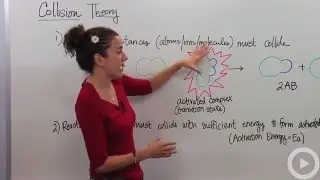 Collision Theory
1) stances (atoms/ions/molecules) must collide
activated complex
(transition state)
+
2AB
2) must collide with sufficient energy to form
(Activation Energy = Ea)